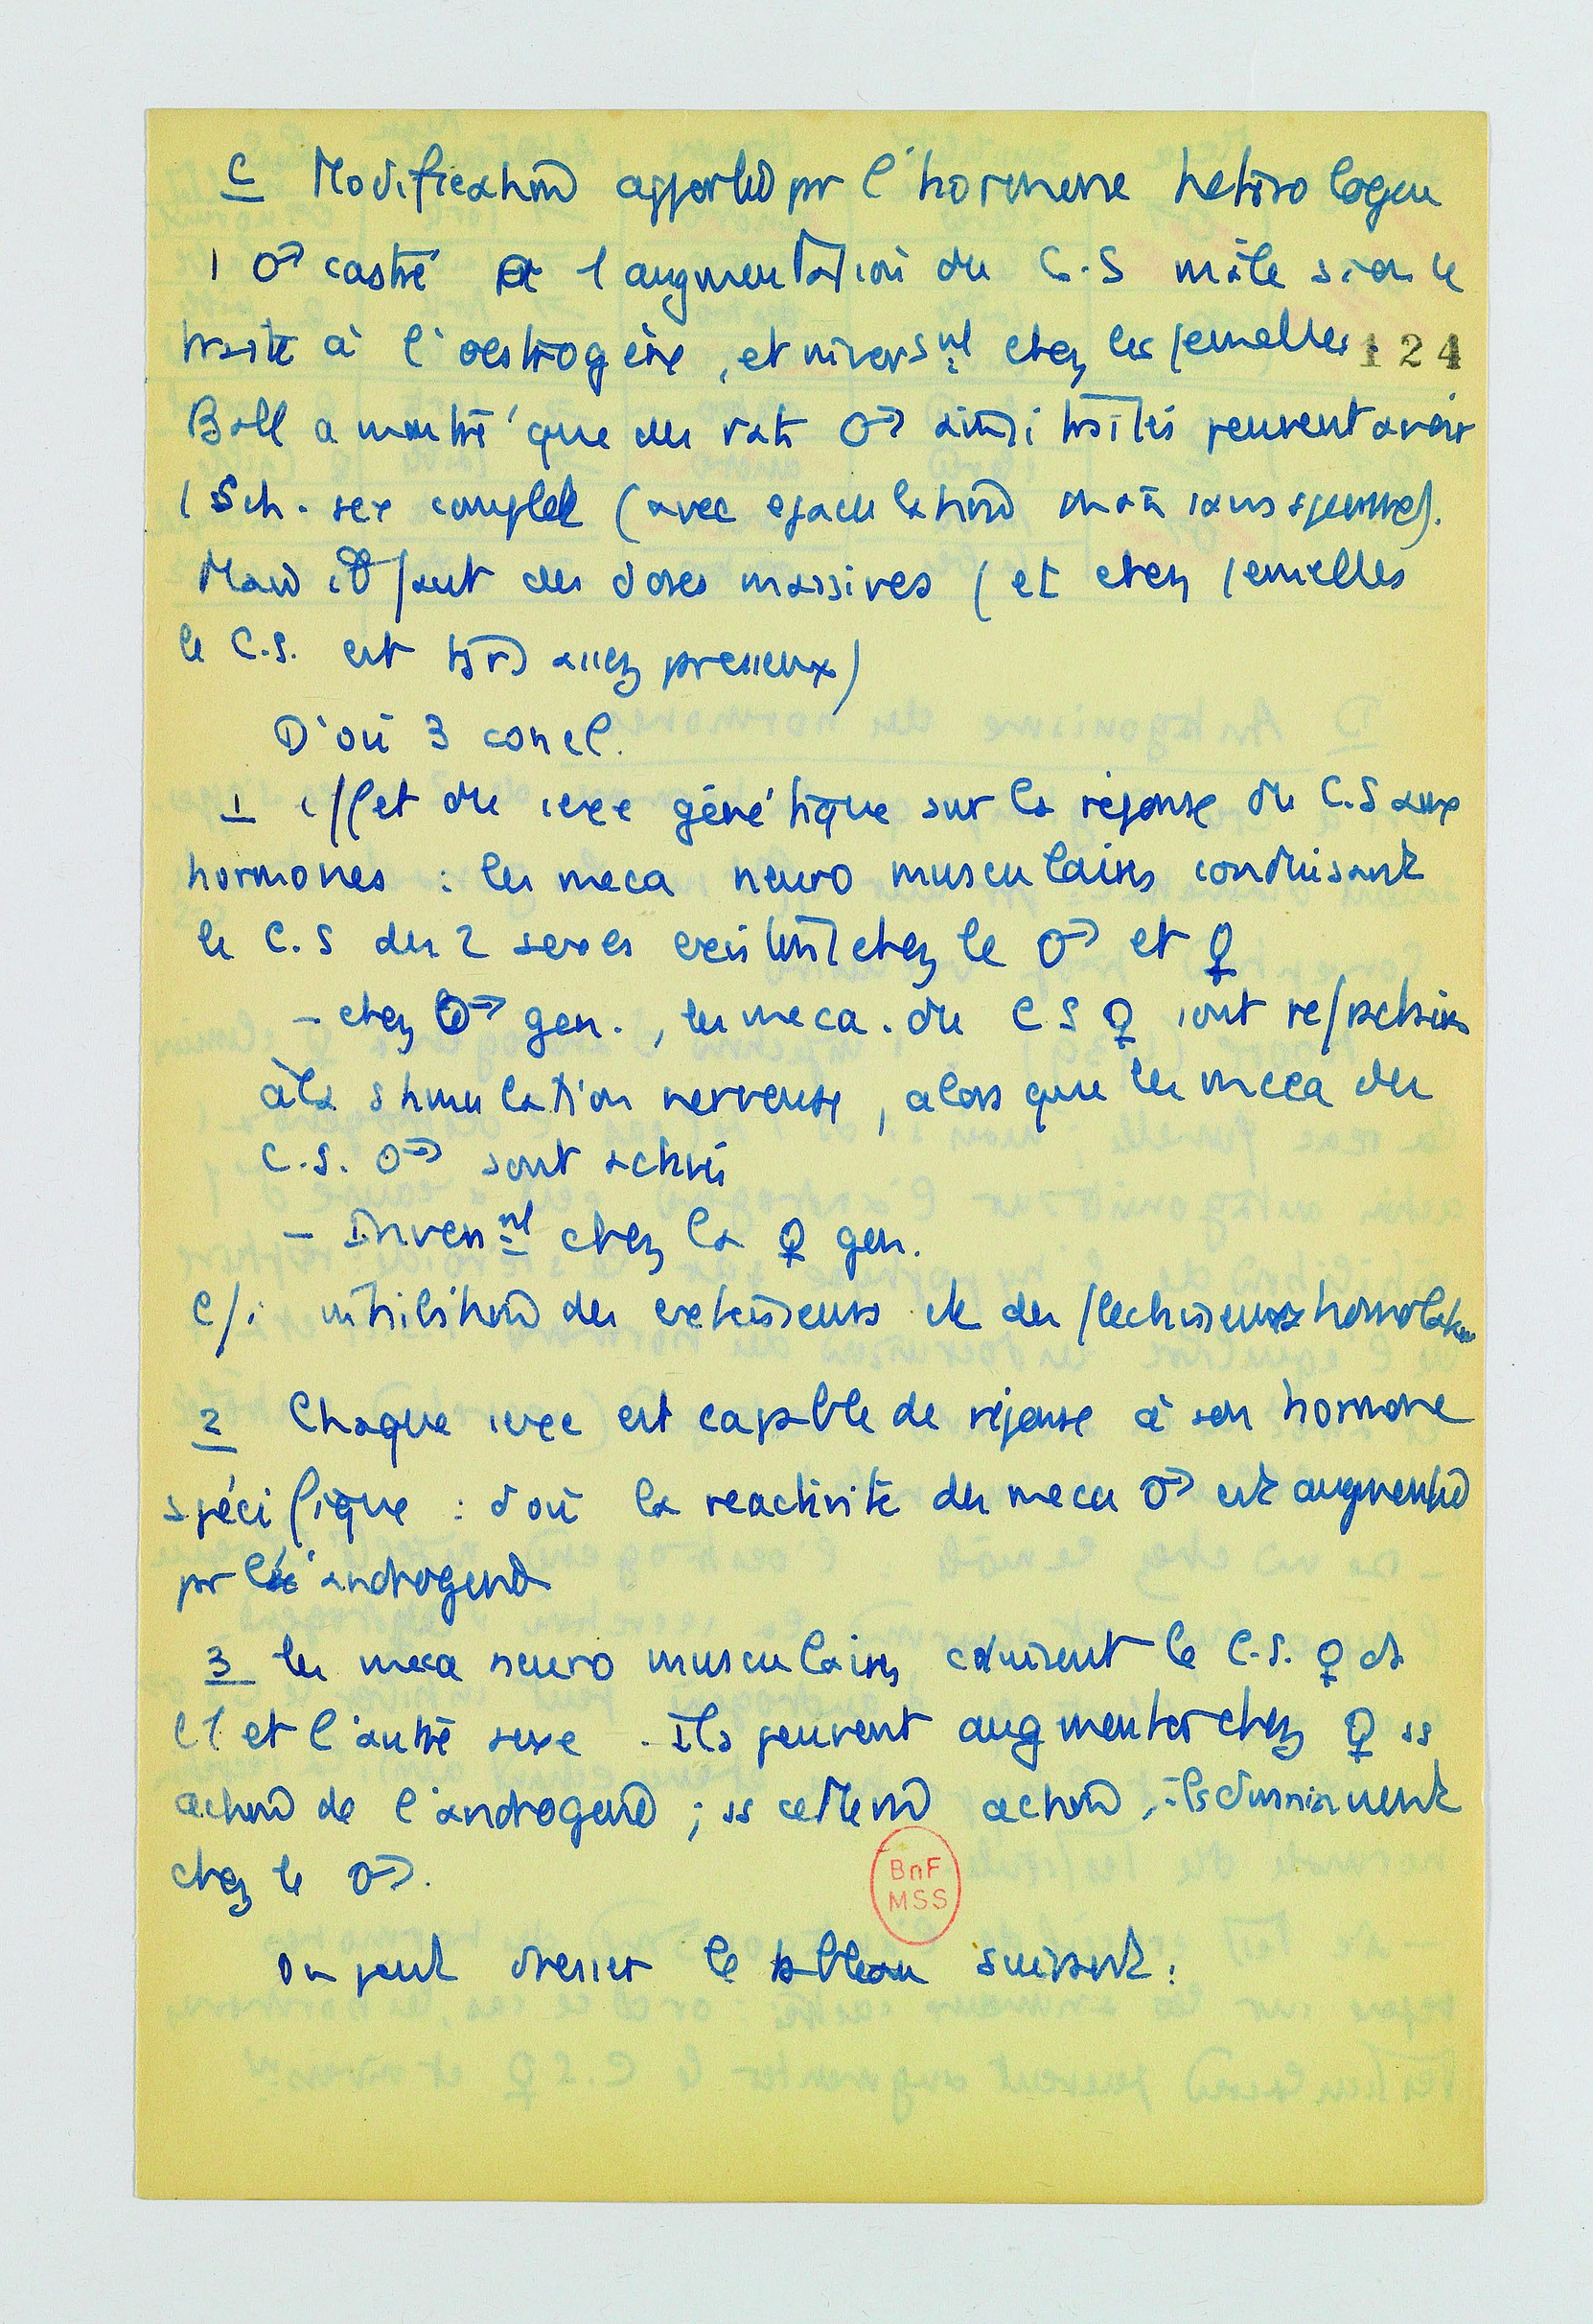 C Modification apportée pr l'hormone hétérologue
1 ♂ castré a 1 augmentation du C.S mâle si on le
traite à l'oestrogène, et invers nt chez les femelles.
124
Ball a montré que des rats ♂ ainsi traités peuvent avoir
1 Sch. sex complet (avec ejaculation mais sans sperme).
Mais il faut des doses massives (et chez femelles
le C.S. est trs assez précieux)
D'où 3 concl.
1 effet du sexe génétique sur la réponse du C.S aux
hormones : les meca neuro musculaires conduisant
le C.S des 2 sexes existent chez le ♂ et ♀
- chez ♂ gen., les meca. du C S ♀ sont réfractaires
à la stimulation nerveuse, alors que les meca du
C.S. ♂ sont activés
- Invers nt chez la ♀ gen.
Cf. inhibition des extenseurs et des fléchisseurs homolat
2 Chaque sexe est capable de réponse à son hormone
spécifique : d'où la reactivité des meca ♂ est augmentée
pr l'androgène
3 les meca neuro musculaires conduisent le C.S. ♀ ds
l'1 et l'autre sexe. Ils peuvent augmenter chez ♀ ss
action de l'androgène ; ss cette action, ils diminuent
chez le ♂.
On peut dresser le tableau suivant :
BnF
MSS